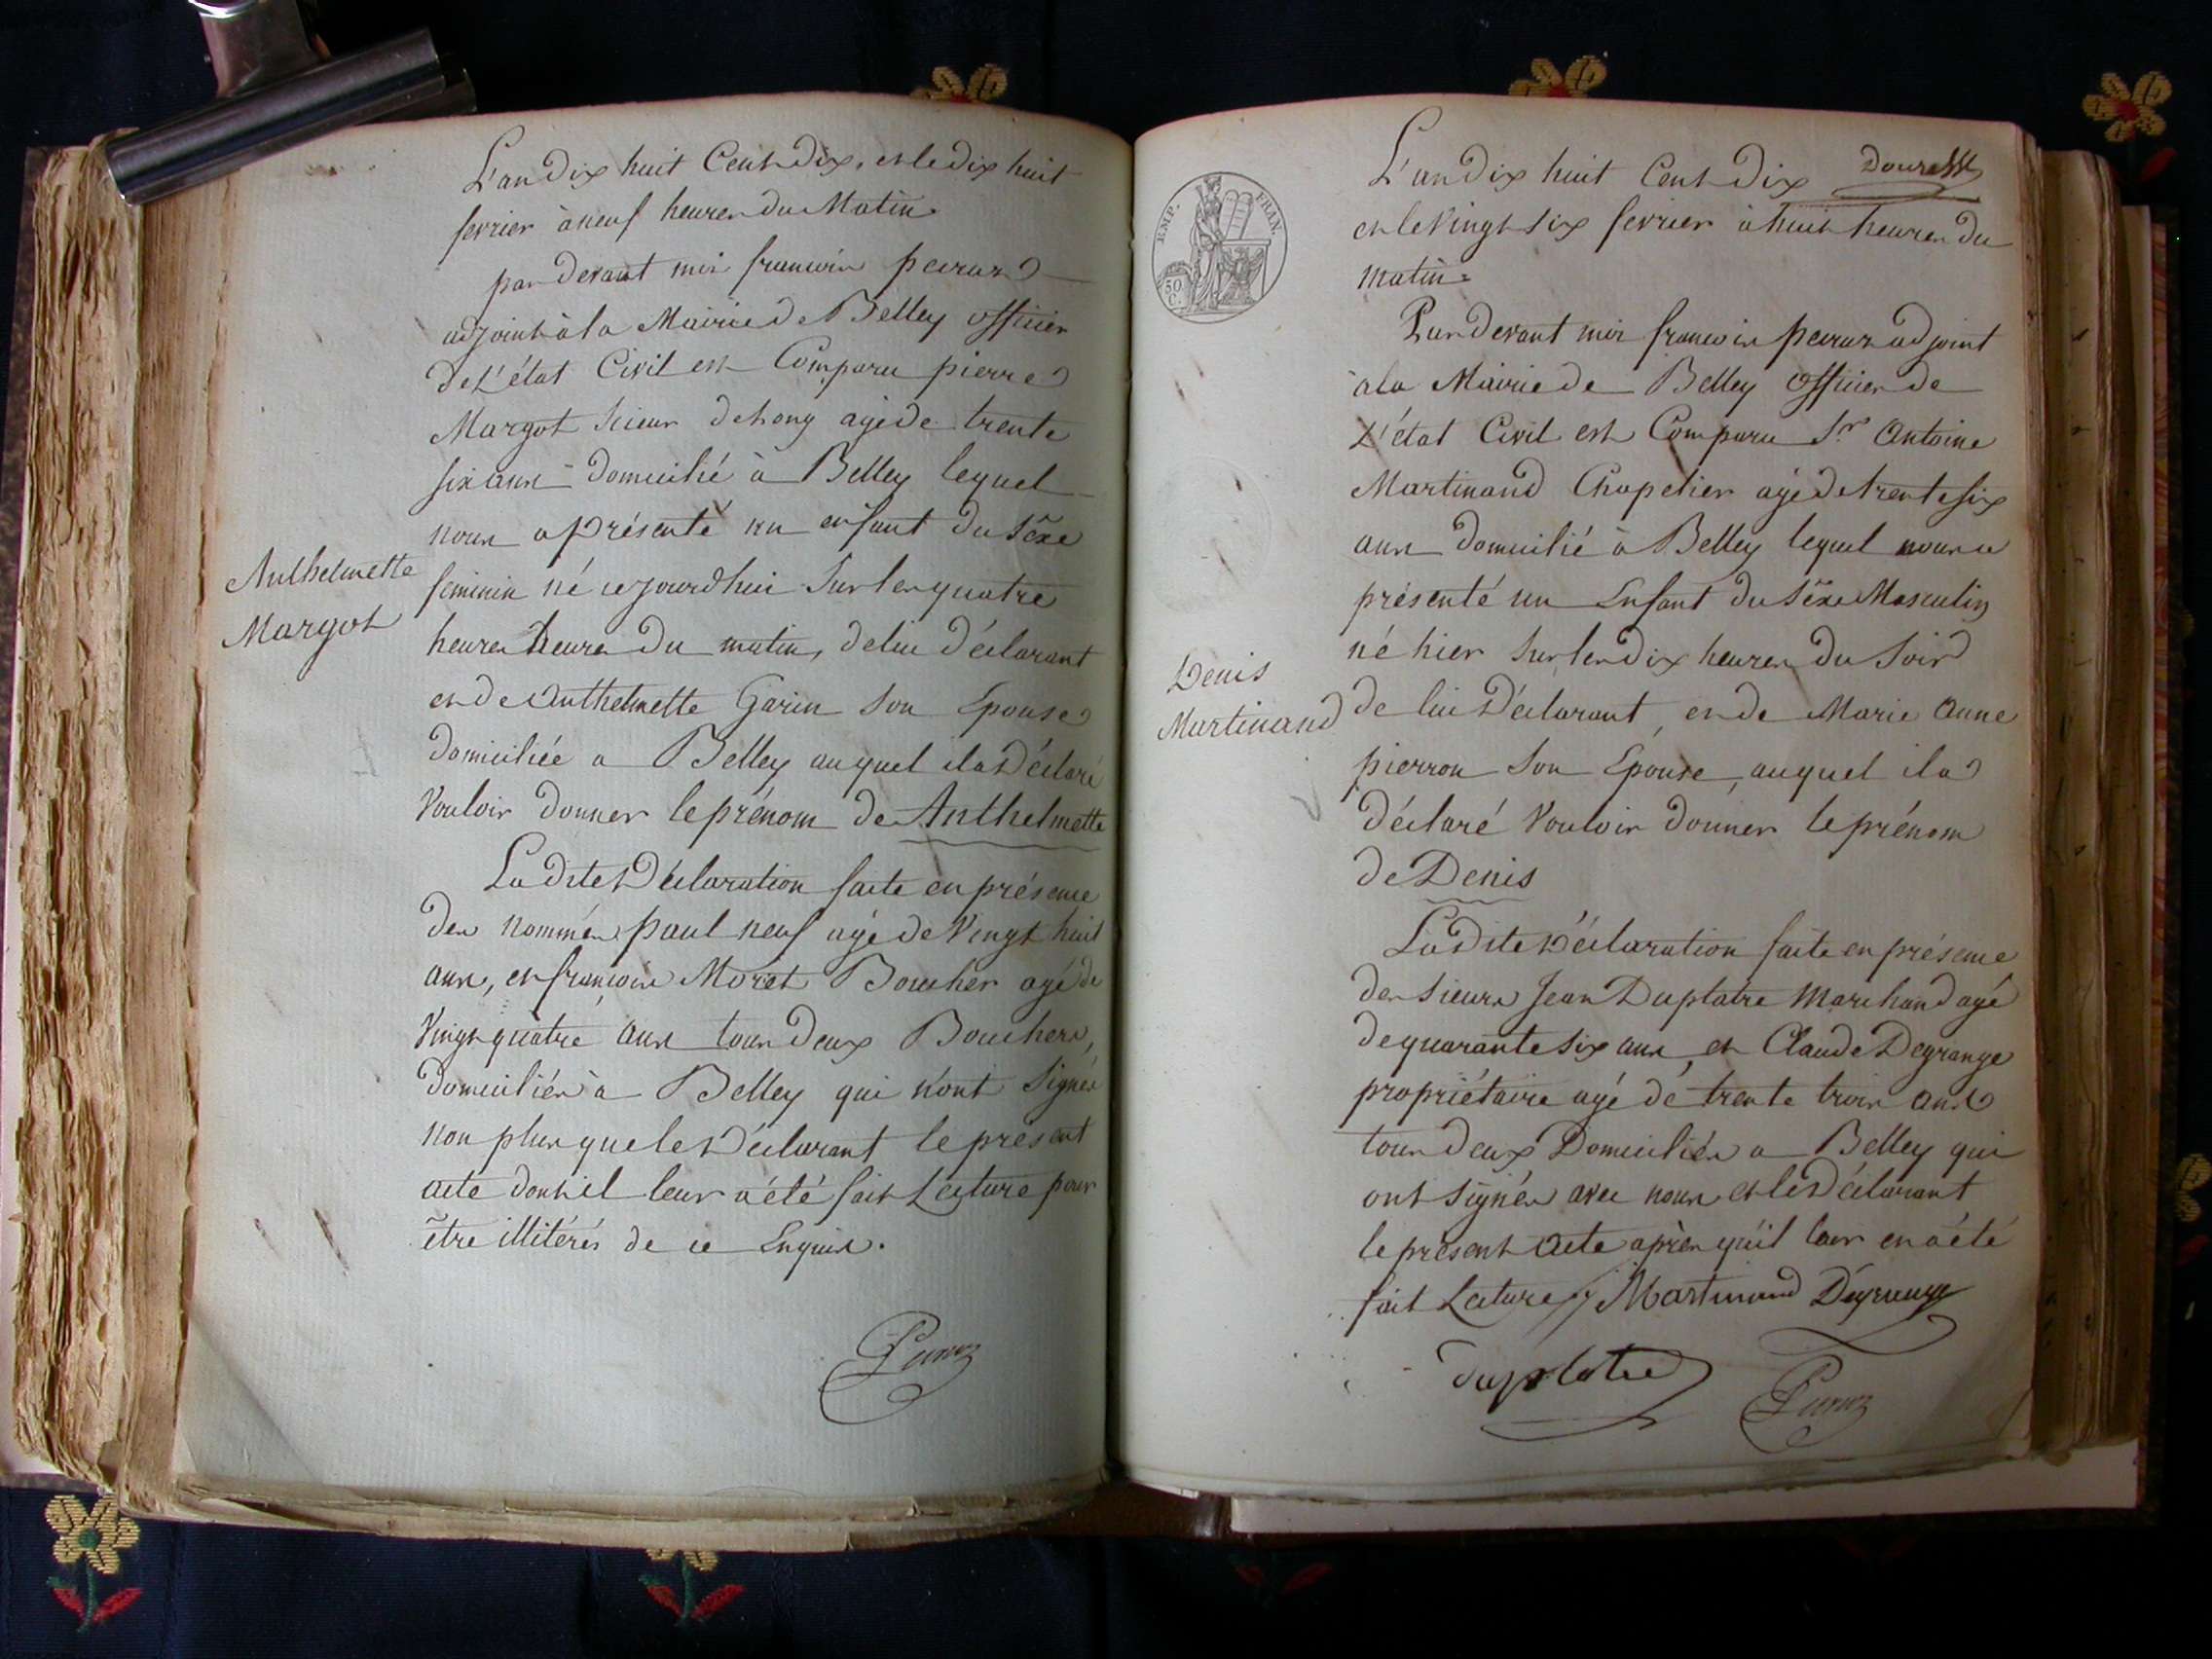 L'an dix huit Cent dix, et le dix huit
fevrier à neuf heures du Matin
par devant moi francois peraz
adjoint à la Mairie de Belley officier
de L'état Civil est Comparu pierre
Margot scieur de long agé de trente
six ans domicilié à Belley lequel
nous a présenté un enfant du séxe
Anthelmette
Margot
feminin né ce jourdhui sur les quatre
heures heures du matin, de lui déclarant
et de Anthelmette Garin son Epouse
domiciliée a Belley auquel il a Déclaré
Vouloir donner le prénom de Anthelmette
La dite Déclaration faite en présence
des nommés paul neuf agé de Vingt huit
ans, et francois Moret Boucher agé de
Vingt quatre ans tous deux Bouchers,
domiciliés à Belley qui n'ont signés
non plus que le Déclarant le présent
acte dont il leur a été fait Lecture pour
être illitérés de ce Enquis.
EMP. FRAN.
50 C.
L'an dix huit Cent dix
et le Vingt six fevrier à huit heures du
matin
Par devant moi francois peraz adjoint
à la Mairie de Belley officier de
L'état Civil est Comparu Sr Antoine
Martinand Chapelier agé de trente six
ans domicilié à Belley lequel nous a
présenté un Enfant du séxe Masculin
né hier sur les dix heures du Soir
Denis
Martinand
de lui Déclarant et de Marie anne
pierron son Epouse, auquel il a
déclaré Vouloir donner le prénom
de Denis
La dite Déclaration faite en présence
des sieurs Jean Duplatre Marchand agé
de quarante six ans et Claude Degrange
propriétaire agé de trente trois ans
tous deux Domiciliés a Belley qui
ont signés avec nous et le Déclarant
le présent acte après qu'il leur en a été
fait Lecture Martinand Dégrange
duplatre